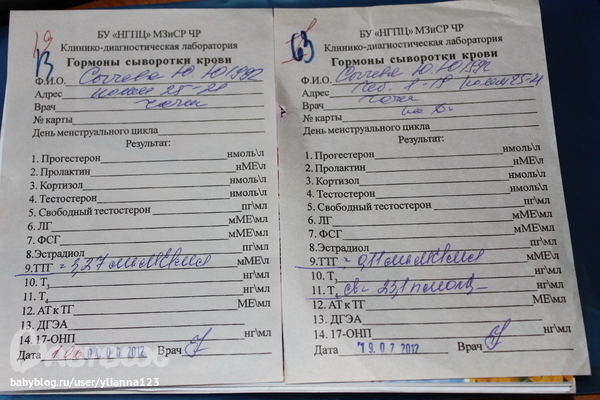 19
13
БУ «НГПЦ» МЗиСР ЧР
Клинико-диагностическая лаборатория
Гормоны сыворотки крови
Ф.И.О. Ю. Ю 1992
Адрес 25-21
Врач
№ карты
День менструального цикла
Результат:
1. Прогестерон нмоль\л
2. Пролактин нМЕ\л
3. Кортизол нмоль\л
4. Тестостерон нмоль\л
5. Свободный тестостерон пг\мл
6. ЛГ мМЕ\мл
7. ФСГ мМЕ\мл
8.Эстрадиол пг\мл
9.ТТГ = 3,27 мМЕ\мл
10. Т3
11. Т4
12. АТ к ТГ МЕ\мл
13. ДГЭА
14. 17-ОНП нг\мл
Дата 2012 Врач
63
БУ «НГПЦ» МЗиСР ЧР
Клинико-диагностическая лаборатория
Гормоны сыворотки крови
Ф.И.О. Ю. Ю 1992
Адрес 8-17 25-21
Врач
№ карты
День менструального цикла
Результат:
1. Прогестерон нмоль\л
2. Пролактин нМЕ\л
3. Кортизол нмоль\л
4. Тестостерон нмоль\л
5. Свободный тестостерон пг\мл
6. ЛГ мМЕ\мл
7. ФСГ мМЕ\мл
8.Эстрадиол пг\мл
9.ТТГ = 0,11 мМЕ\мл
10. Т3
11. Т4 св = 23,1
12. АТ к ТГ МЕ\мл
13. ДГЭА
14. 17-ОНП нг\мл
Дата 19. 07 2012 Врач
babyblog.ru/user/ylianna123